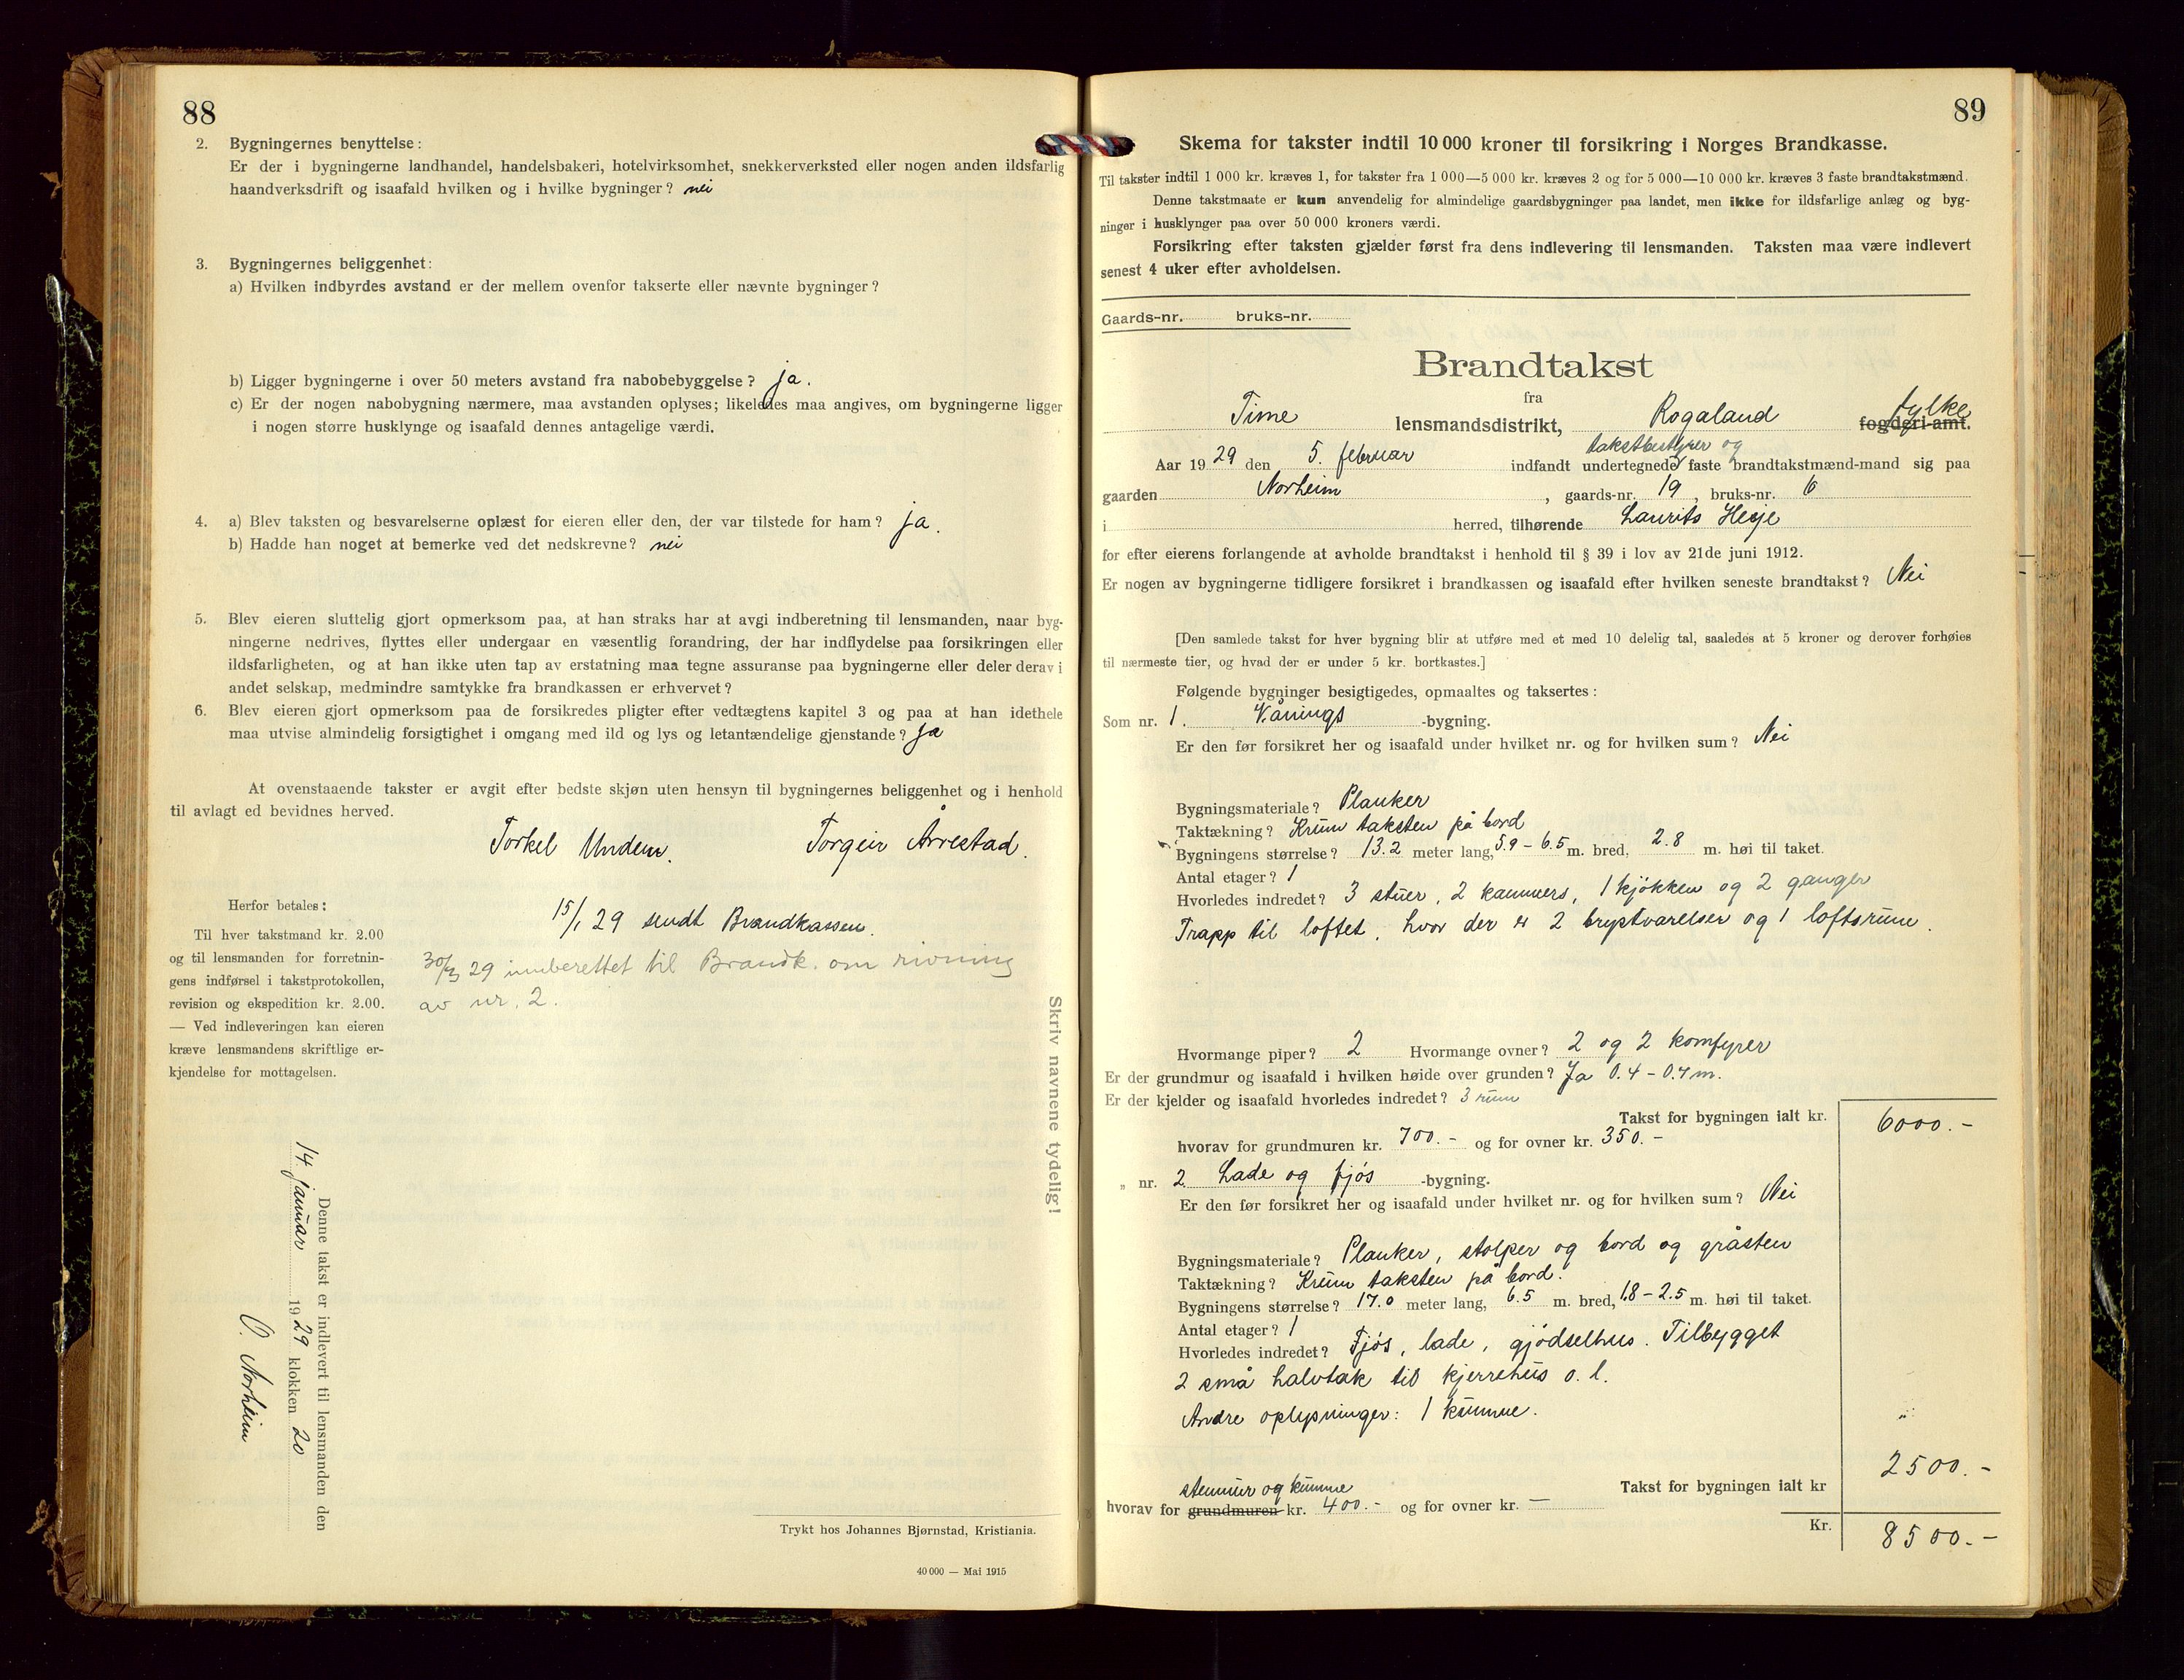 88
2. Bygningernes benyttelse:
Er der i bygningerne landhandel, handelsbakeri, hotelvirksomhet, snekkerverksted eller nogen anden ildsfarlig
haandverksdrift og isaafald hvilken og i hvilke bygninger? nei
3. Bygningernes beliggenhet:
a) Hvilken indbyrdes avstand er der mellem ovenfor takserte eller nævnte bygninger?
b) Ligger bygningerne i over 50 meters avstand fra nabobebyggelse? ja.
c) Er der nogen nabobygning nærmere, maa avstanden oplyses; likeledes maa angives, om bygningerne ligger
i nogen større husklynge og isaafald dennes antagelige værdi.
4. a) Blev taksten og besvarelserne oplæst for eieren eller den, der var tilstede for ham? ja.
b) Hadde han noget at bemerke ved det nedskrevne? nei
5. Blev eieren sluttelig gjort opmerksom paa, at han straks har at avgi indberetning til lensmanden, naar byg-
ningerne nedrives, flyttes eller undergaar en væsentlig forandring, der har indflydelse paa forsikringen eller
ildsfarligheten, og at han ikke uten tap av erstatning maa tegne assuranse paa bygningerne eller deler derav i
andet selskap, medmindre samtykke fra brandkassen er erhvervet?
6. Blev eieren gjort opmerksom paa de forsikredes pligter efter vedtægtens kapitel 3 og paa at han idethele
maa utvise almindelig forsigtighet i omgang med ild og lys og letantændelige gjenstande? Ja
At ovenstaaende takster er avgit efter bedste skjøn uten hensyn til bygningernes beliggenhet og i henhold
til avlagt ed bevidnes herved.
Torkel Undem. Torgeir Årrestad.
Herfor betales:
Til hver takstmand kr. 2.00
og til lensmanden for forretnin-
gens indførsel i takstprotokollen,
revision og ekspedition kr. 2.00.
— Ved indleveringen kan eieren
kræve lensmandens skriftlige er-
kjendelse for mottagelsen.
15/1 29 sendt Brandkassen.
30/3 29 innberettet til Brandk. om rivning
av nr. 2.
Skriv navnene tydelig!
Denne takst er indlevert til lensmanden den
14. januar 1929 klokken 20
O. Norheim
Trykt hos Johannes Bjørnstad, Kristiania.
40 000 — Mai 1915
89
Skema for takster indtil 10 000 kroner til forsikring i Norges Brandkasse.
Til takster indtil 1 000 kr. kræves 1, for takster fra 1 000—5 000 kr. kræves 2 og for 5 000—10 000 kr. kræves 3 faste brandtakstmænd.
Denne takstmaate er kun anvendelig for almindelige gaardsbygninger paa landet, men ikke for ildsfarlige anlæg og byg-
ninger i husklynger paa over 50 000 kroners værdi.
Forsikring efter taksten gjælder først fra dens indlevering til lensmanden. Taksten maa være indlevert
senest 4 uker efter avholdelsen.
Gaards-nr. bruks-nr.
Brandtakst
fra
Time lensmandsdistrikt, Rogaland fogderi-amt. fylke
takstbestyrer og
Aar 1929 den 5. februar indfandt undertegnede faste brandtakstmænd-mand sig paa
gaarden Norheim, gaards-nr. 19, bruks-nr. 6
i herred, tilhørende Laurits Hegje
for efter eierens forlangende at avholde brandtakst i henhold til § 39 i lov av 21de juni 1912.
Er nogen av bygningerne tidligere forsikret i brandkassen og isaafald efter hvilken seneste brandtakst? Nei
[Den samlede takst for hver bygning blir at utføre med et med 10 delelig tal, saaledes at 5 kroner og derover forhøies
til nærmeste tier, og hvad der er under 5 kr. bortkastes.]
Følgende bygninger besigtigedes, opmaaltes og taksertes:
Som nr. 1. Vånings-bygning.
Er den før forsikret her og isaafald under hvilket nr. og for hvilken sum? Nei
Bygningsmateriale? Planker
Taktækning? Krum taksten på bord
Bygningens størrelse? 13.2 meter lang, 5.9 - 6.5 m. bred, 2.8 m. høi til taket.
Antal etager? 1
Hvorledes indredet? 3 stuer, 2 kammers, 1 kjøkken og 2 ganger
Trapp til loftet, hvor der er 2 brystvarelser og 1 loftsrum.
Hvormange piper? 2 Hvormange ovner? 2 og 2 komfyrer
Er der grundmur og isaafald i hvilken høide over grunden? Ja 0.4 - 0.7 m.
Er der kjelder og isaafald hvorledes indredet? 3 rum
Takst for bygningen ialt kr. 6000.-
hvorav for grundmuren kr. 700.- og for ovner kr. 350.-
„ nr. 2 Lade og fjøs-bygning.
Er den før forsikret her og isaafald under hvilket nr. og for hvilken sum? Nei
Bygningsmateriale? Planker, stolper og bord og gråsten
Taktækning? Krum taksten på bord.
Bygningens størrelse? 17.0 meter lang, 6.5 m. bred, 1.8 - 2.5 m. høi til taket.
Antal etager? 1
Hvorledes indredet? Fjøs, lade, gjødselhus. Tilbygget
2 små halvtak til kjerrehus o.l.
Andre oplysninger: 1 kumme.
stenmur og kumme
Takst for bygningen ialt kr 2500.-
hvorav for grundmuren kr. 400.- og for ovner kr. —
Kr. 8500.-